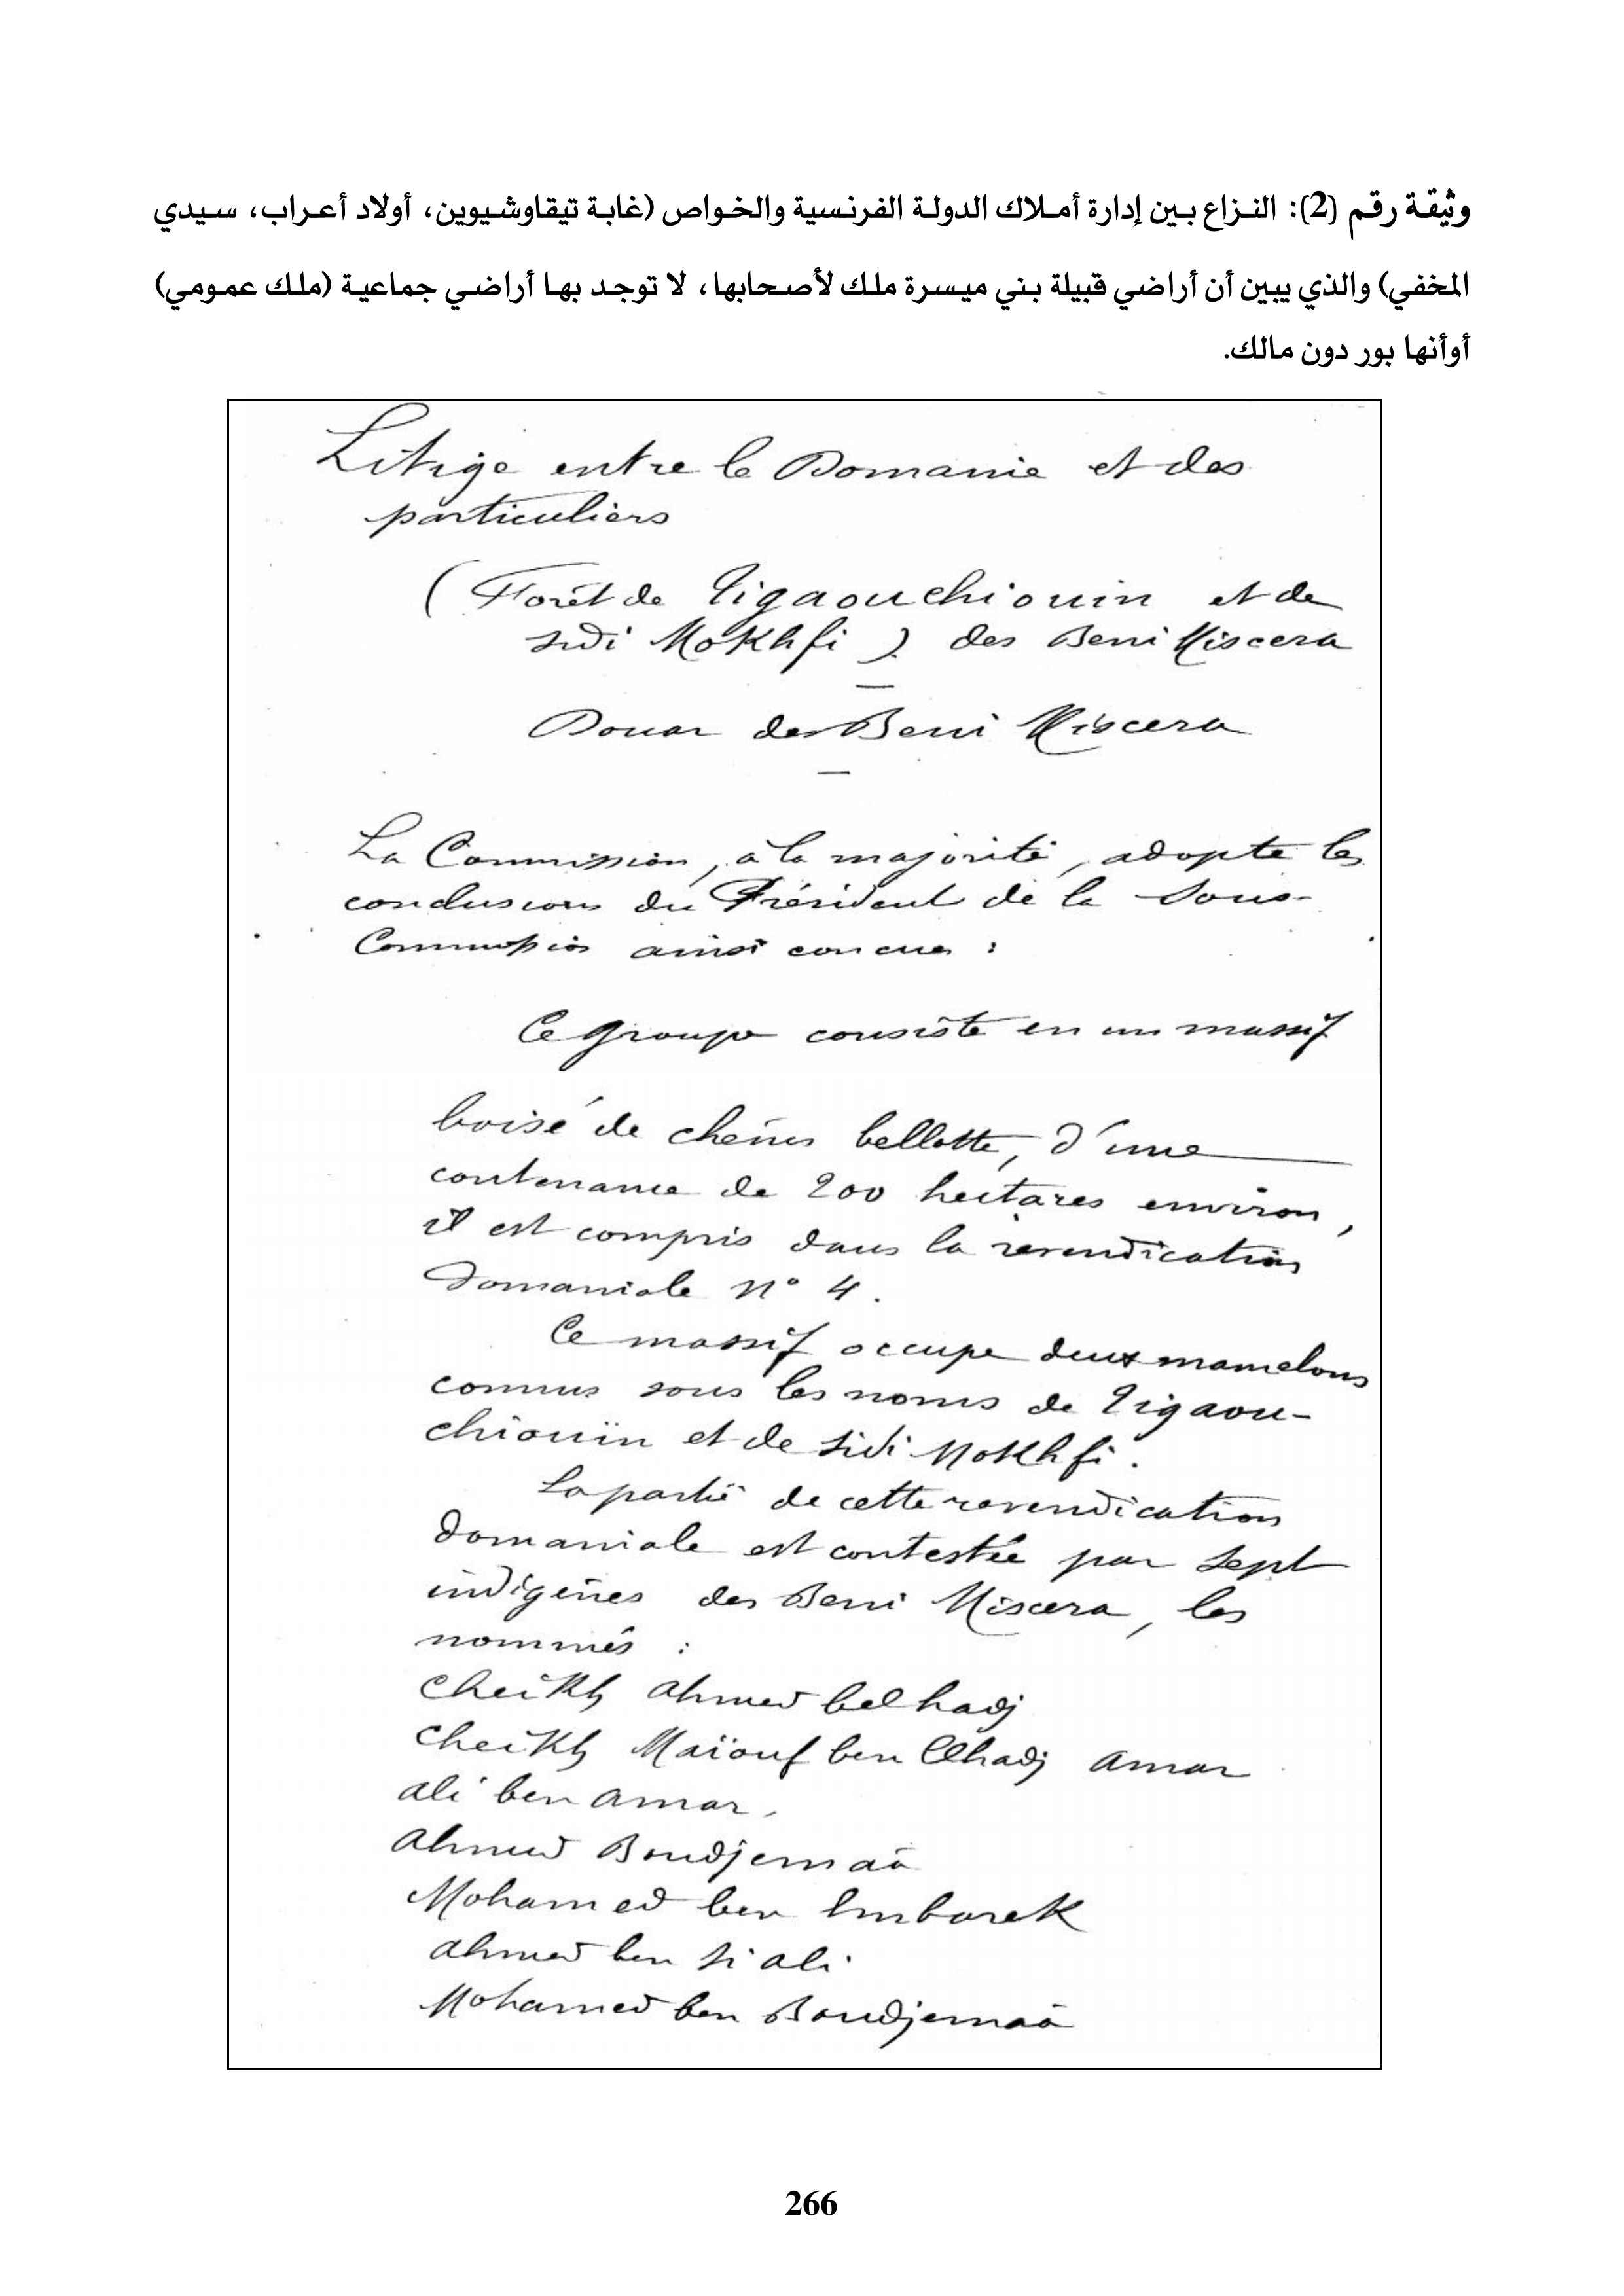 وثيقة رقم (2): النزاع بين إدارة أملاك الدولة الفرنسية والخواص (غابة تيقاوشيوين، أولاد أعراب، سيدي
المخفي) والذي يبين أن أراضي قبيلة بني ميسرة ملك لأصحابها، لا توجد بها أراضي جماعية (ملك عمومي)
أوأنها بور دون مالك.
Litige entre le Domanie et des
particuliers
( Forêt de Tigaouchiouin et de
sidi Mokhfi ) des Beni Miscera
Douar des Beni Miscera
La Commission, à la majorité, adopte les
conclusions du Président de la Sous-
Commission ainsi concues :
Ce groupe consiste en un massif
boisé de chênes bellotte, d'une
contenance de 200 hectares environ,
il est compris dans la revendication
domaniale n° 4.
Ce massif occupe deux mamelons
connus sous les noms de Tigaou-
chiouïn et de sidi Mokhfi.
La partie de cette revendication
domaniale est contestée par sept
indigènes des Beni Miscera, les
nommés :
Cheikh Ahmed bel hadj
Cheikh Maïouf ben Elhadj Amar
Ali ben Amar.
Ahmed Boudjemaâ
Mohamed ben Embarek
Ahmed ben Si Ali
Mohamed ben Boudjemaâ
266